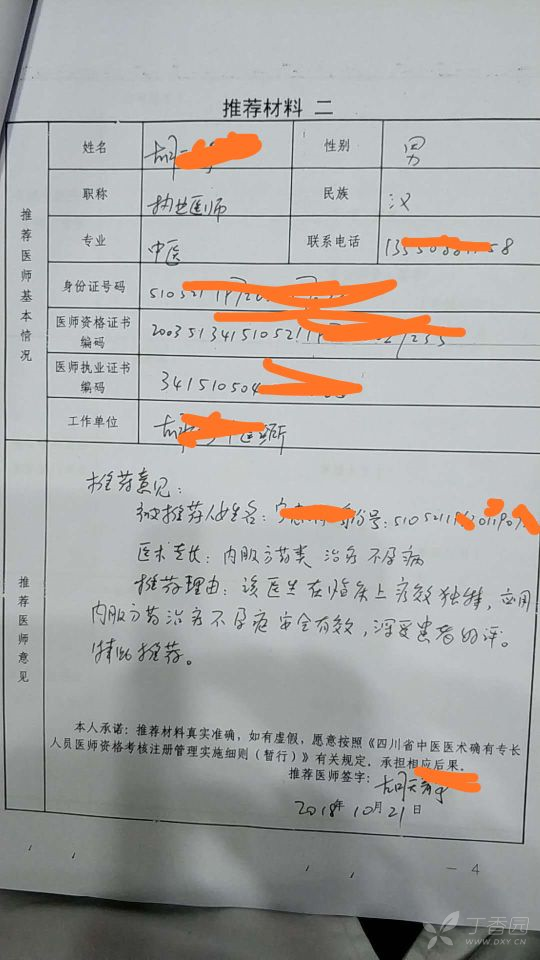 推荐材料 二
姓名 性别 男
职称 执业医师 民族 汉
专业 中医 联系电话
推荐医师基本情况
身份证号码
医师资格证书编码
医师执业证书编码
工作单位
推荐意见：
被推荐人姓名：
医术专长：内服方药类 治疗不孕病
推荐理由：该医生在临床上疗效独特，应用
内服方药治疗不孕症安全有效，深受患者好评。
特此推荐。
推荐医师意见
本人承诺：推荐材料真实准确，如有虚假，愿意按照《四川省中医医术确有专长
人员医师资格考核注册管理实施细则（暂行）》有关规定，承担相应后果。
推荐医师签字：
2018年10月21日
- 4
丁香园
WWW.DXY.CN